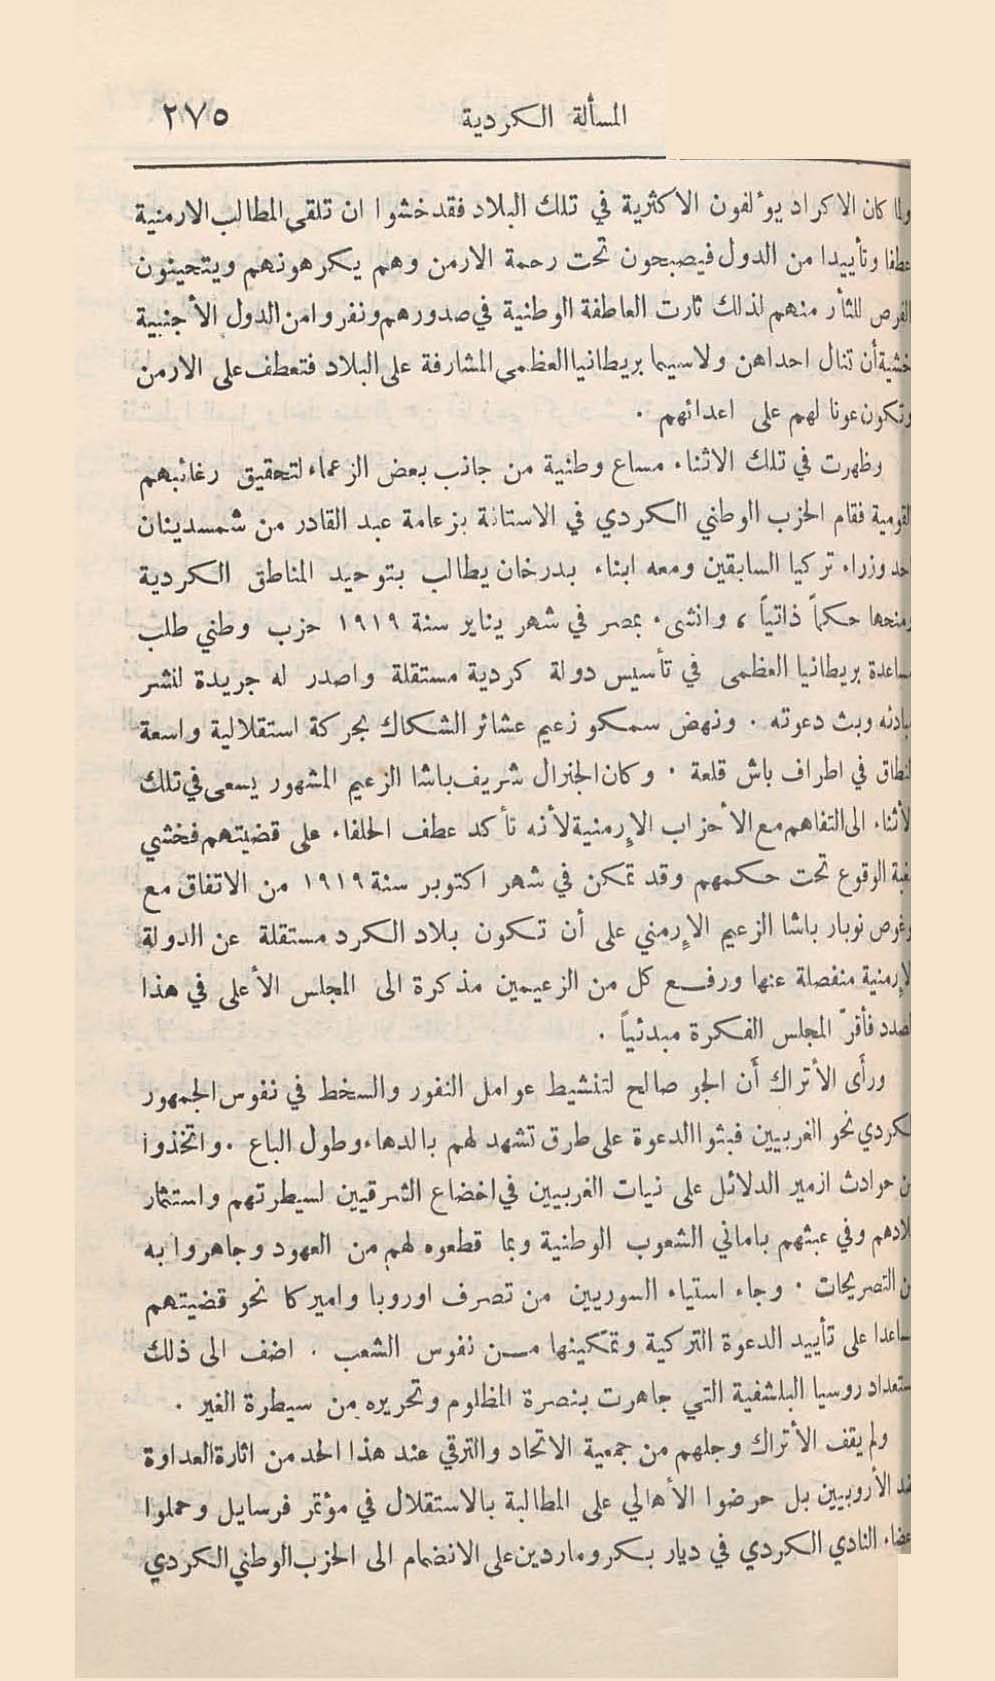 المسألة الكردية ٢٧٥
ولما كان الاكراد يوٴلفون الاكثرية في تلك البلاد فقد خشوا ان تلقى المطالب الارمنية
عطفا وتأييدا من الدول فيصبحون تحت رحمة الارمن وهم يكرهونهم ويتحينون
الفرص للثأر منهم لذلك ثارت العاطفة الوطنية في صدورهم ونفروا من الدول الأجنبية
خشية أن تنال احداهن ولاسيما بريطانيا العظمى المشارفة على البلاد فتعطف على الارمن
وتكون عونا لهم على اعدائهم .
وظهرت في تلك الاثناء مساع وطنية من جانب بعض الزعماء لتحقيق رغائبهم
القومية فقام الحزب الوطني الكردي في الاستانة بزعامة عبد القادر من شمسدينان
احد وزراء تركيا السابقين ومعه ابناء بدرخان يطالب بتوحيد المناطق الكردية
ومنحها حكماً ذاتياً ، وانشىء بمصر في شهر يناير سنة ١٩١٩ حزب وطني طلب
مساعدة بريطانيا العظمى في تأسيس دولة كردية مستقلة واصدر له جريدة لنشر
مبادئه وبث دعوته . ونهض سمكو زعيم عشائر الشكاك بحركة استقلالية واسعة
النطاق في اطراف باش قلعة . وكان الجنرال شريف باشا الزعيم المشهور يسعى في تلك
الأثناء الى التفاهم مع الأحزاب الإرمنية لأنه تأكد عطف الحلفاء على قضيتهم فخشي
مغبة الوقوع تحت حكمهم وقد تمكن في شهر اكتوبر سنة ١٩١٩ من الاتفاق مع
بوغوص نوبار باشا الزعيم الإرمني على أن تكون بلاد الكرد مستقلة عن الدولة
الإرمنية منفصلة عنها ورفع كل من الزعيمين مذكرة الى المجلس الأعلى في هذا
الصدد فأقرّ المجلس الفكرة مبدئياً .
ورأى الأتراك أن الجو صالح لتنشيط عوامل النفور والسخط في نفوس الجمهور
الكردي نحو الغربيين فبثوا الدعوة على طرق تشهد لهم بالدهاء وطول الباع . واتخذوا
من حوادث ازمير الدلائل على نيات الغربيين في اخضاع الشرقيين لسيطرتهم واستثمار
بلادهم وفي عبثهم باماني الشعوب الوطنية وبما قطعوه لهم من العهود وجاهروا به
من التصريحات . وجاء استياء السوريين من تصرف اوروبا واميركا نحو قضيتهم
مساعدا على تأييد الدعوة التركية وتمكينها من نفوس الشعب . اضف الى ذلك
استعداد روسيا البلشفية التي جاهرت بنصرة المظلوم وتحريره من سيطرة الغير .
ولم يقف الأتراك وجلهم من جمعية الاتحاد والترقي عند هذا الحد من اثارة العداوة
ضد الأروبيين بل حرضوا الأهالي على المطالبة بالاستقلال في مؤتمر فرسايل وحملوا
اعضاء النادي الكردي في ديار بكر وماردين على الانضمام الى الحزب الوطني الكردي